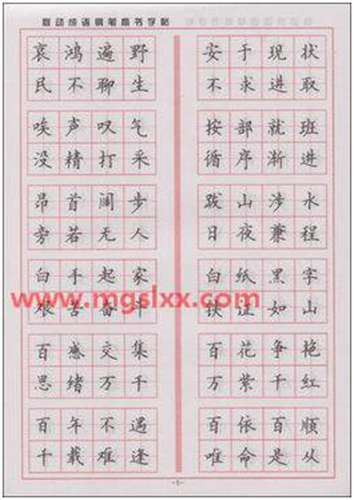 成语钢笔楷书字帖
哀鸿遍野
民不聊生
唉声叹气
没精打采
昂首阔步
旁若无人
白手起家
艰苦奋斗
百感交集
思绪万千
百年不遇
千载难逢
安于现状
不求进取
按部就班
循序渐进
跋山涉水
日夜兼程
白纸黑字
铁证如山
百花争艳
万紫千红
百依百顺
唯命是从
www.mgslxx.com
-1-